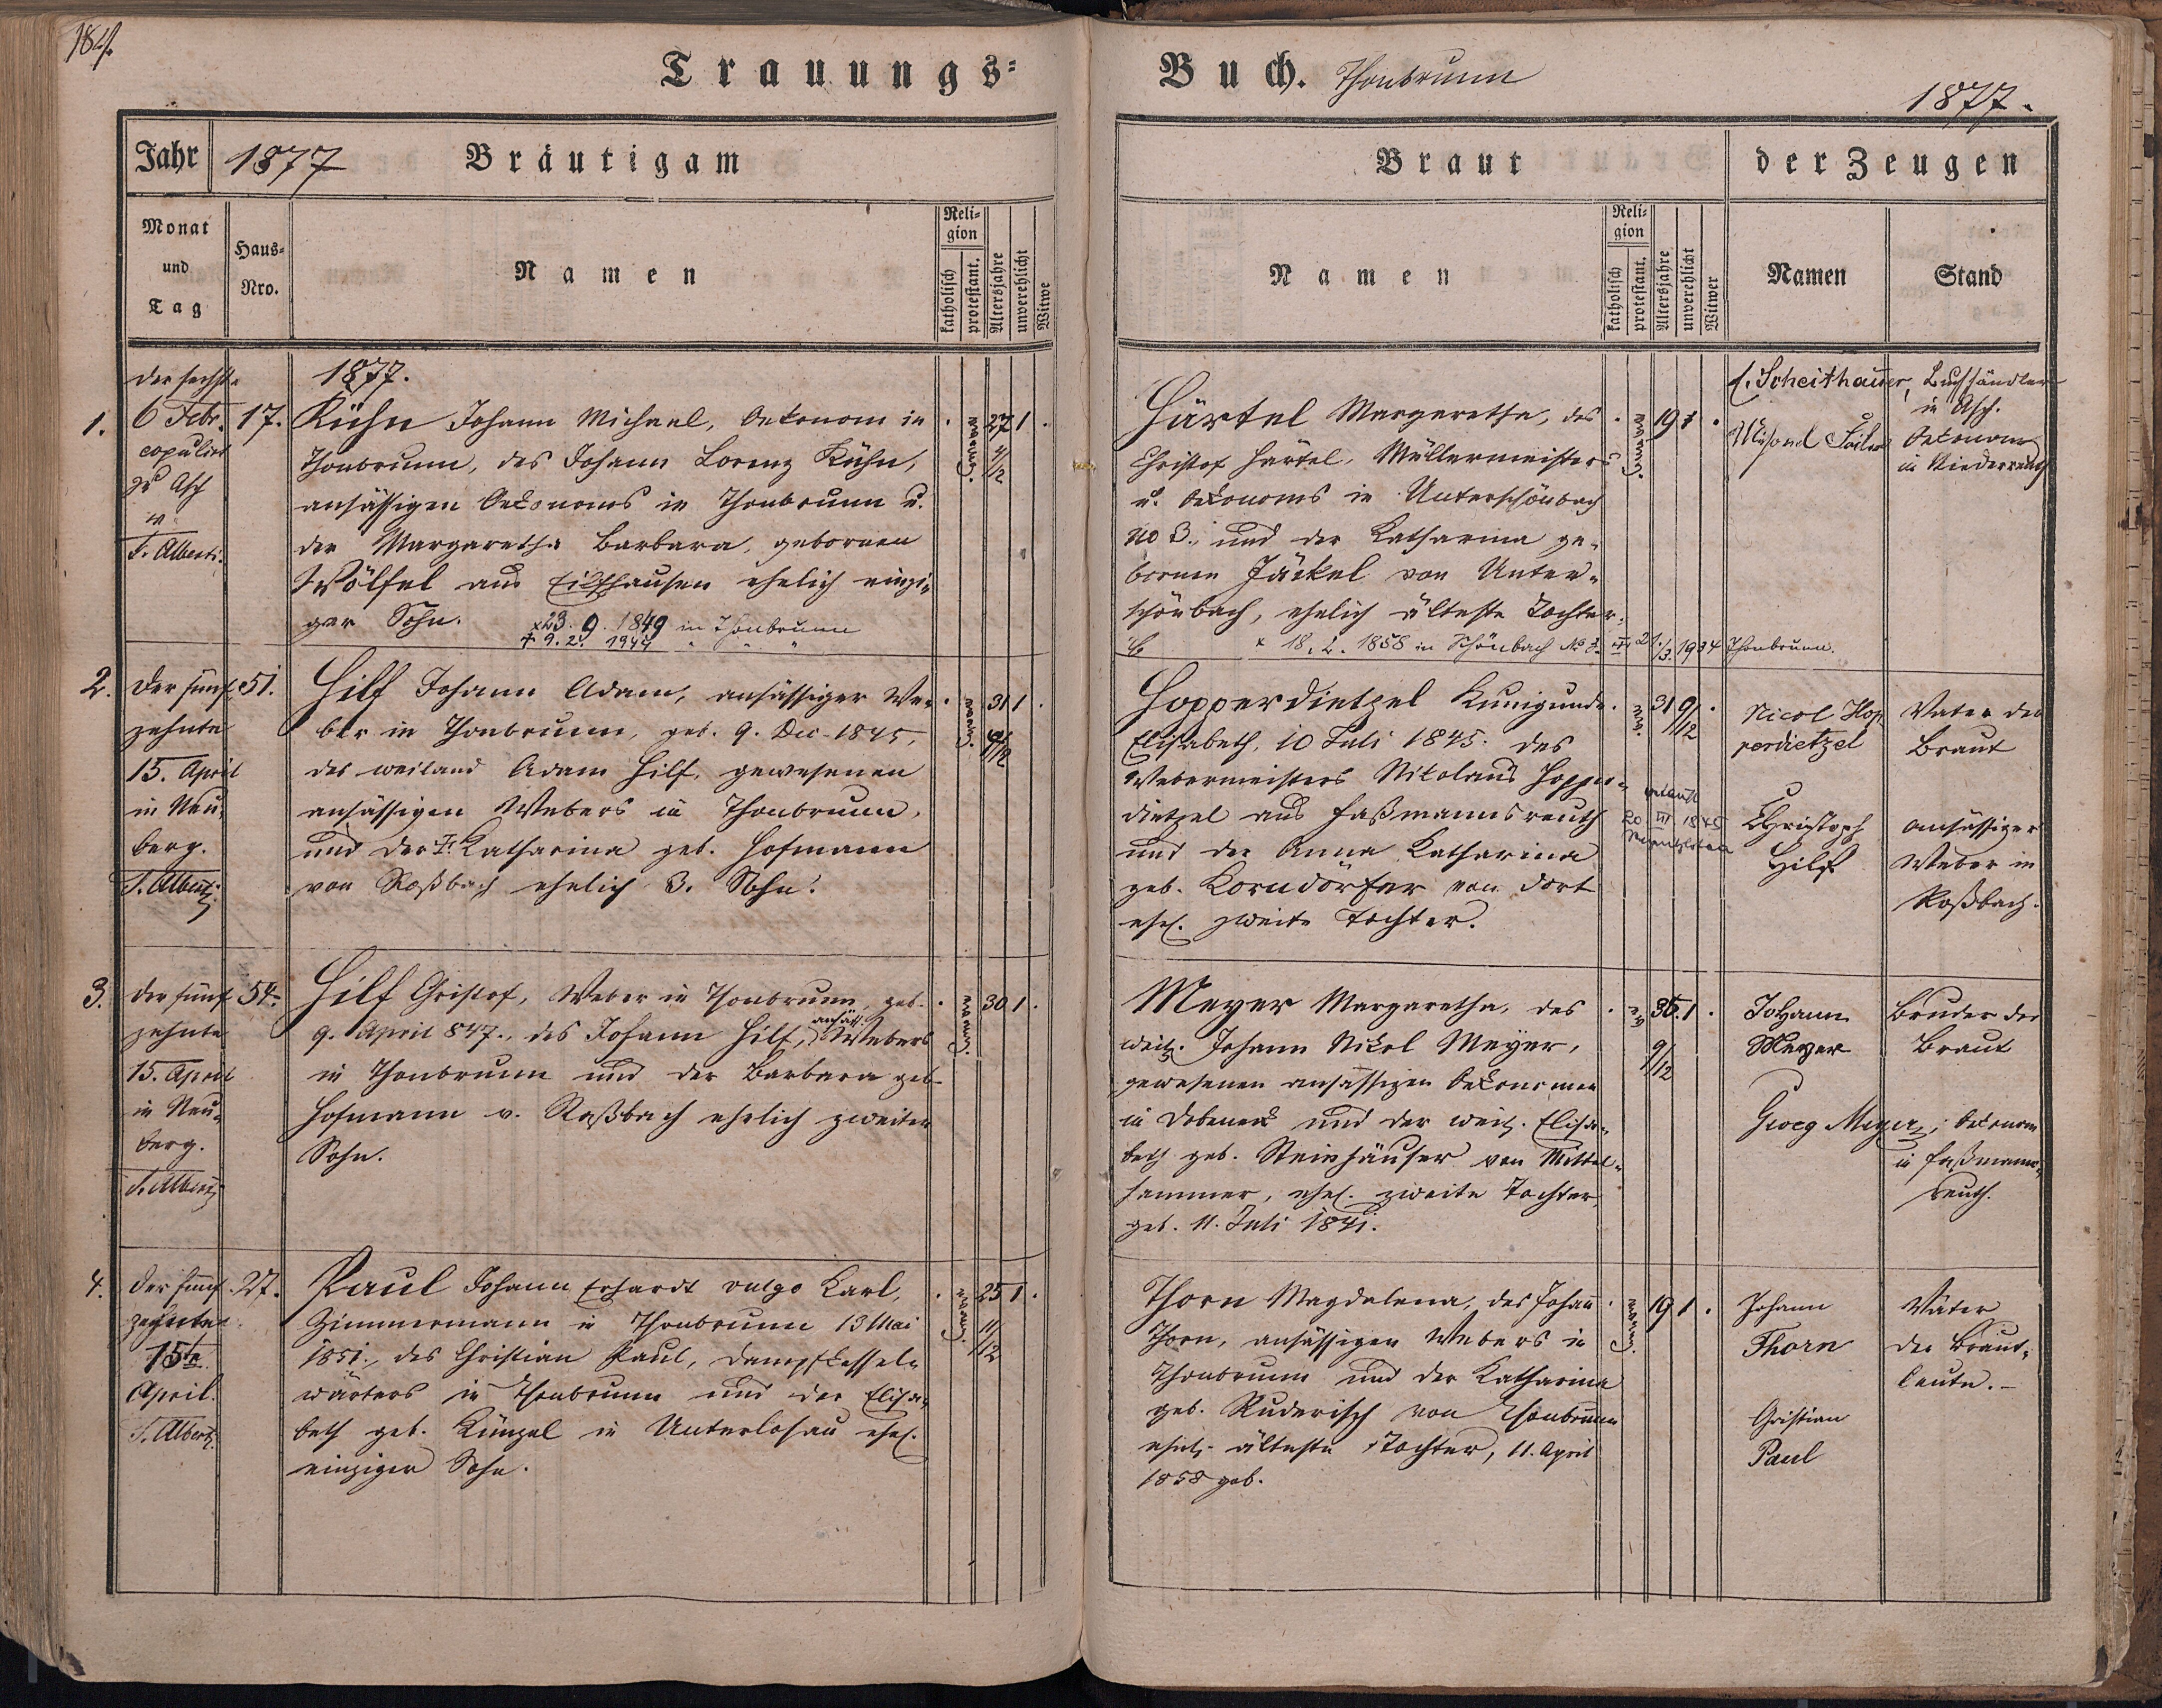 184.
Trauungs-
Buch. Thonbrunn
1877.
Jahr 1877 Bräutigam
Braut der Zeugen
Monat und Tag
Haus-Nro.
Namen
Religion
katholisch
protestant.
Altersjahre
unverehlicht
Witwe
Namen
Religion
katholisch
protestant.
Altersjahre
unverehlicht
Witwer
Namen
Stand
1.
der sechste
6 Febr.
copulirt
zu Asch
T. Alberti.
17.
1877.
Kühn Johann Michael, Oekonom in
Thonbrunn, des Johann Lorenz Kühn,
ansässigen Oekonoms in Thonbrunn u.
der Margaretha Barbara, gebornen
Wölfel aus Eichhausen ehelich einzi-
ger Sohn.
x 23. 9. 1849 in Thonbrunn
† 9. 2. 1944 " " "
evang.
27 1
4/12
Härtel Margaretha, des
Christof Härtel, Müllermeisters
u. Oekonoms in Unterschönbach
No 3., und der Katharina ge-
bornen Jäckel von Unter-
schönbach, ehelich älteste Tochter.
x 18. 2. 1858 in Schönbach No 3. † 21./3. 1934 Thonbrunn.
evang.
19 1
C. Scheithauer, Buchhändler
in Asch.
Oekonom
in Niederreuth
2.
Der fünf-
zehnte
15. April
in Neu-
berg.
T. Alberti.
51.
Hilf Johann Adam, ansässiger We-
ber in Thonbrunn, geb. 9. Dec. 1845,
des weiland Adam Hilf, gewesenen
ansässigen Webers in Thonbrunn,
und der Katharina geb. Hofmann
von Roßbach ehelich 3. Sohn.
evang.
31 1
4/12
Hopperdietzel Kunigunde
Elisabeth, 10 Juli 1845. des
Webermeisters Nikolaus Hopper-
dietzel aus Faßmannsreuth
und der Anna Katharina
geb. Korndörfer von dort
ehel. zweite Tochter.
ev.
31 9/12
20. III 1845
Nicol Hop
perdietzel
Vater der
Braut
Christoph
Hilf
ansässiger
Weber in
Roßbach.
3.
Der fünf
zehnte
15. April
in Neu-
berg.
T. Alberti
54.
Hilf Christof, Weber in Thonbrunn, geb.
9. April 847., des Johann Hilf, ansäß. Webers
in Thonbrunn und der Barbara geb.
Hofmann v. Roßbach ehelich zweiter
Sohn.
evang.
30 1.
Meyer Margaretha, des
weil. Johann Nikol Meyer,
gewesenen ansässigen Oekonomen
in Dobeneck und der weil. Elisa-
beth geb. Steinhäuser von Mittel-
hammer, ehel. zweite Tochter,
geb. 11. Juli 1841.
ev.
35. 1
9/12
Johann
Meyer
Bruder der
Braut
Georg Meyer, Oekonom
in Faßmanns-
reuth.
4.
Der fünf
zehnte
15te
April.
T. Alberti.
27.
Paul Johann Erhardt vulgo Karl,
Zimmermann in Thonbrunn 13 Mai
1851., des Christian Paul, Dampfkessel-
wärters in Thonbrunn und der Elisa-
beth geb. Künzel in Unterlosau ehel.
einziger Sohn.
evang.
25 1
11/12
Thorn Magdalena, des Johann
Thorn, ansässigen Webers in
Thonbrunn und der Katharina
geb. Ruderisch von Thonbrunn
ehel. älteste Tochter, 11. April
1858 geb.
evang.
19 1
Johann
Thorn
Christian
Paul
Väter
der Braut-
leute.